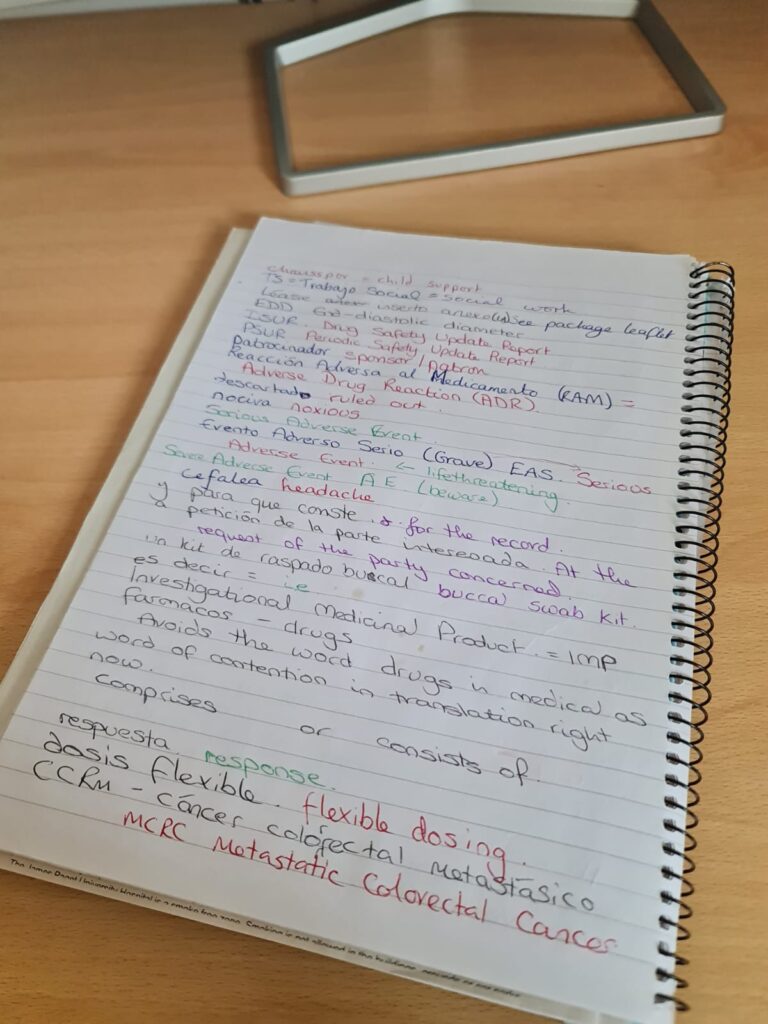 = child support
TS = Trabajo Social = Social work
see package leaflet
EDD End-diastolic diameter
Drug Safety Update Report
PSUR Periodic Safety Update Report
Patrocinador sponsor /
Reacción Adversa al Medicamento (RAM) =
Adverse Drug Reaction (ADR)
descartado ruled out.
nociva noxious
Serious Adverse Event.
Evento Adverso Serio (Grave) EAS. Serious
Adverse Event. ← lifethreatening
Adverse Event AE (beware)
Cefalea headache
y para que conste. for the record.
a petición de la parte interesada. At the
request of the party concerned.
un kit de raspado bucal buccal swab kit.
es decir = i.e
Investigational Medicinal Product. = IMP
farmacos - drugs
Avoids the word drugs in medical as
word of contention in translation right
now.
Comprises or consists of.
respuesta response.
dosis flexible. flexible dosing.
CCRm - cáncer colorectal metastásico
MCRC Metastatic Colorectal Cancer
University Hospital is a smoke free zone. Smoking is not allowed in the buildings,